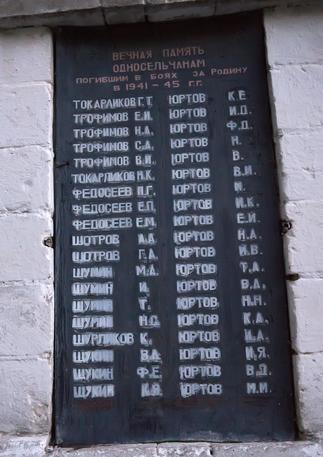 ВЕЧНАЯ ПАМЯТЬ
ОДНОСЕЛЬЧАНАМ
ПОГИБШИМ В БОЯХ ЗА РОДИНУ
В 1941-45 Г.Г.
ТОКАРЛИКОВ Г.Т. ЮРТОВ К.Е
ТРОФИМОВ Е.И. ЮРТОВ И.Д.
ТРОФИМОВ Н.А. ЮРТОВ Ф.Д.
ТРОФИМОВ С.А. ЮРТОВ Н.
ТРОФИМОВ В.И. ЮРТОВ В.
ТОКАРЛИКОВ Н.К. ЮРТОВ В.И.
ФЕДОСЕЕВ П.Г. ЮРТОВ И.
ФЕДОСЕЕВ Е.П. ЮРТОВ И.К.
ФЕДОСЕЕВ Е.М. ЮРТОВ Е.И.
ШОТРОВ А.А. ЮРТОВ Н.А.
ШОТРОВ Г.А. ЮРТОВ И.В.
ЩУКИН М.Д. ЮРТОВ Т.А.
ЩУКИН И. ЮРТОВ В.А.
ЩУКИН Т. ЮРТОВ Н.Н.
ЩУКИН Н.С. ЮРТОВ К.А.
ШУРЛИКОВ К. ЮРТОВ И.А.
ЩУКИН В.А. ЮРТОВ И.Я.
ЩУКИН Ф.Е. ЮРТОВ В.Д.
ЩУКИН ЮРТОВ М.И.